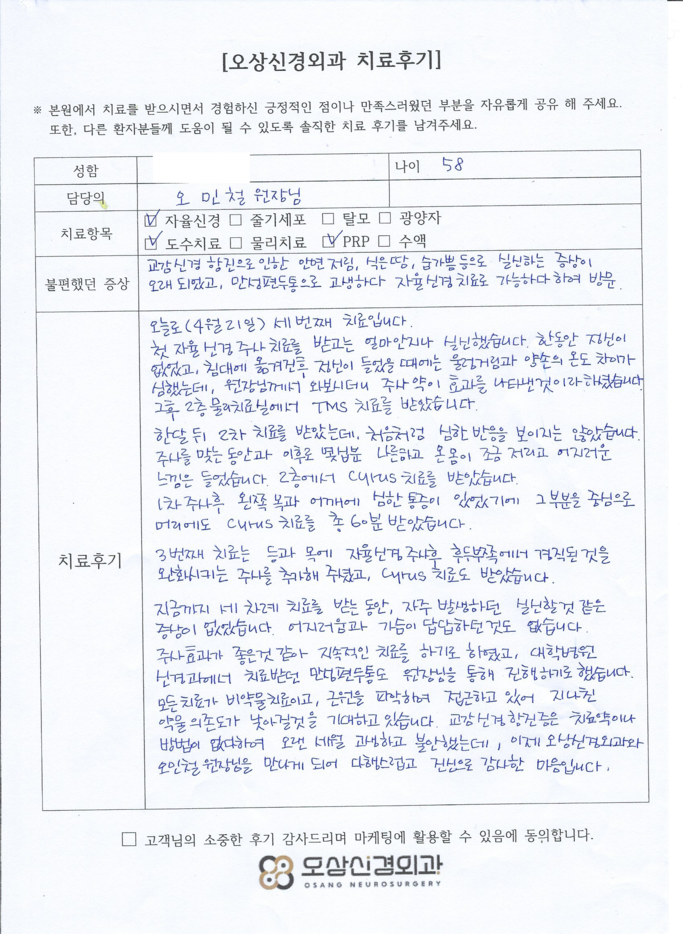 [오상신경외과 치료후기]
※ 본원에서 치료를 받으시면서 경험하신 긍정적인 점이나 만족스러웠던 부분을 자유롭게 공유 해 주세요.
또한, 다른 환자분들께 도움이 될 수 있도록 솔직한 치료 후기를 남겨주세요.
성함 나이 58
담당의 오 민철 원장님
치료항목 ☑ 자율신경 ☐ 줄기세포 ☐ 탈모 ☐ 광양자
☑ 도수치료 ☐ 물리치료 ☑ PRP ☐ 수액
불편했던 증상
교감신경 항진으로 인한 안면 저림, 식은땀, 숨가쁨 등으로 실신하는 증상이
오래 되었고, 만성편두통으로 고생하다 자율신경 치료로 가능하다 하여 방문
치료후기
오늘로 (4월 21일) 세번째 치료입니다.
첫 자율 신경 주사 치료를 받고는 얼마안지나 실신했습니다. 한동안 정신이
없었고, 침대에 옮겨진후 정신이 들었을 때에는 울렁거림과 양손의 온도 차이가
심했는데, 원장님께서 와보시더니 주사 약이 효과를 나타낸것이라 하셨습니다
그후 2층 물리치료실에서 TMS 치료를 받았습니다.
한달 뒤 2차 치료를 받았는데, 처음처럼 심한 반응을 보이지는 않았습니다.
주사를 맞는 동안과 이후로 몇십분 나른하고 온몸이 조금 저리고 어지러운
느낌은 들었습니다. 2층에서 Cyrus 치료를 받았습니다.
1차 주사후 왼쪽 목과 어깨에 심한 통증이 있었기에 그부분을 중심으로
머리에도 Cyrus 치료를 총 60분 받았습니다.
3번째 치료는 등과 목에 자율신경 주사후 후두부쪽에서 경직된 것을
완화시키는 주사를 추가해 주셨고, Cyrus 치료도 받았습니다.
지금까지 세 차례 치료를 받는 동안, 자주 발생하던 실신할것 같은
증상이 없었습니다. 어지러움과 가슴이 답답하던것도 없습니다.
주사효과가 좋은것 같아 지속적인 치료를 하기로 하였고, 대학병원
신경과에서 치료받던 만성편두통도 원장님을 통해 진행하기로 했습니다.
모든치료가 비약물치료이고, 근원을 파악하여 접근하고 있어 지나친
약물 의존도가 낮아질것을 기대하고 있습니다. 교감신경항진증은 치료약이나
방법이 없다하여 오랜 세월 고생하고 불안했는데, 이제 오상신경외과와
오민철 원장님을 만나게 되어 다행스럽고 진심으로 감사한 마음입니다.
☐ 고객님의 소중한 후기 감사드리며 마케팅에 활용할 수 있음에 동의합니다.
오상신경외과
OSANG NEUROSURGERY